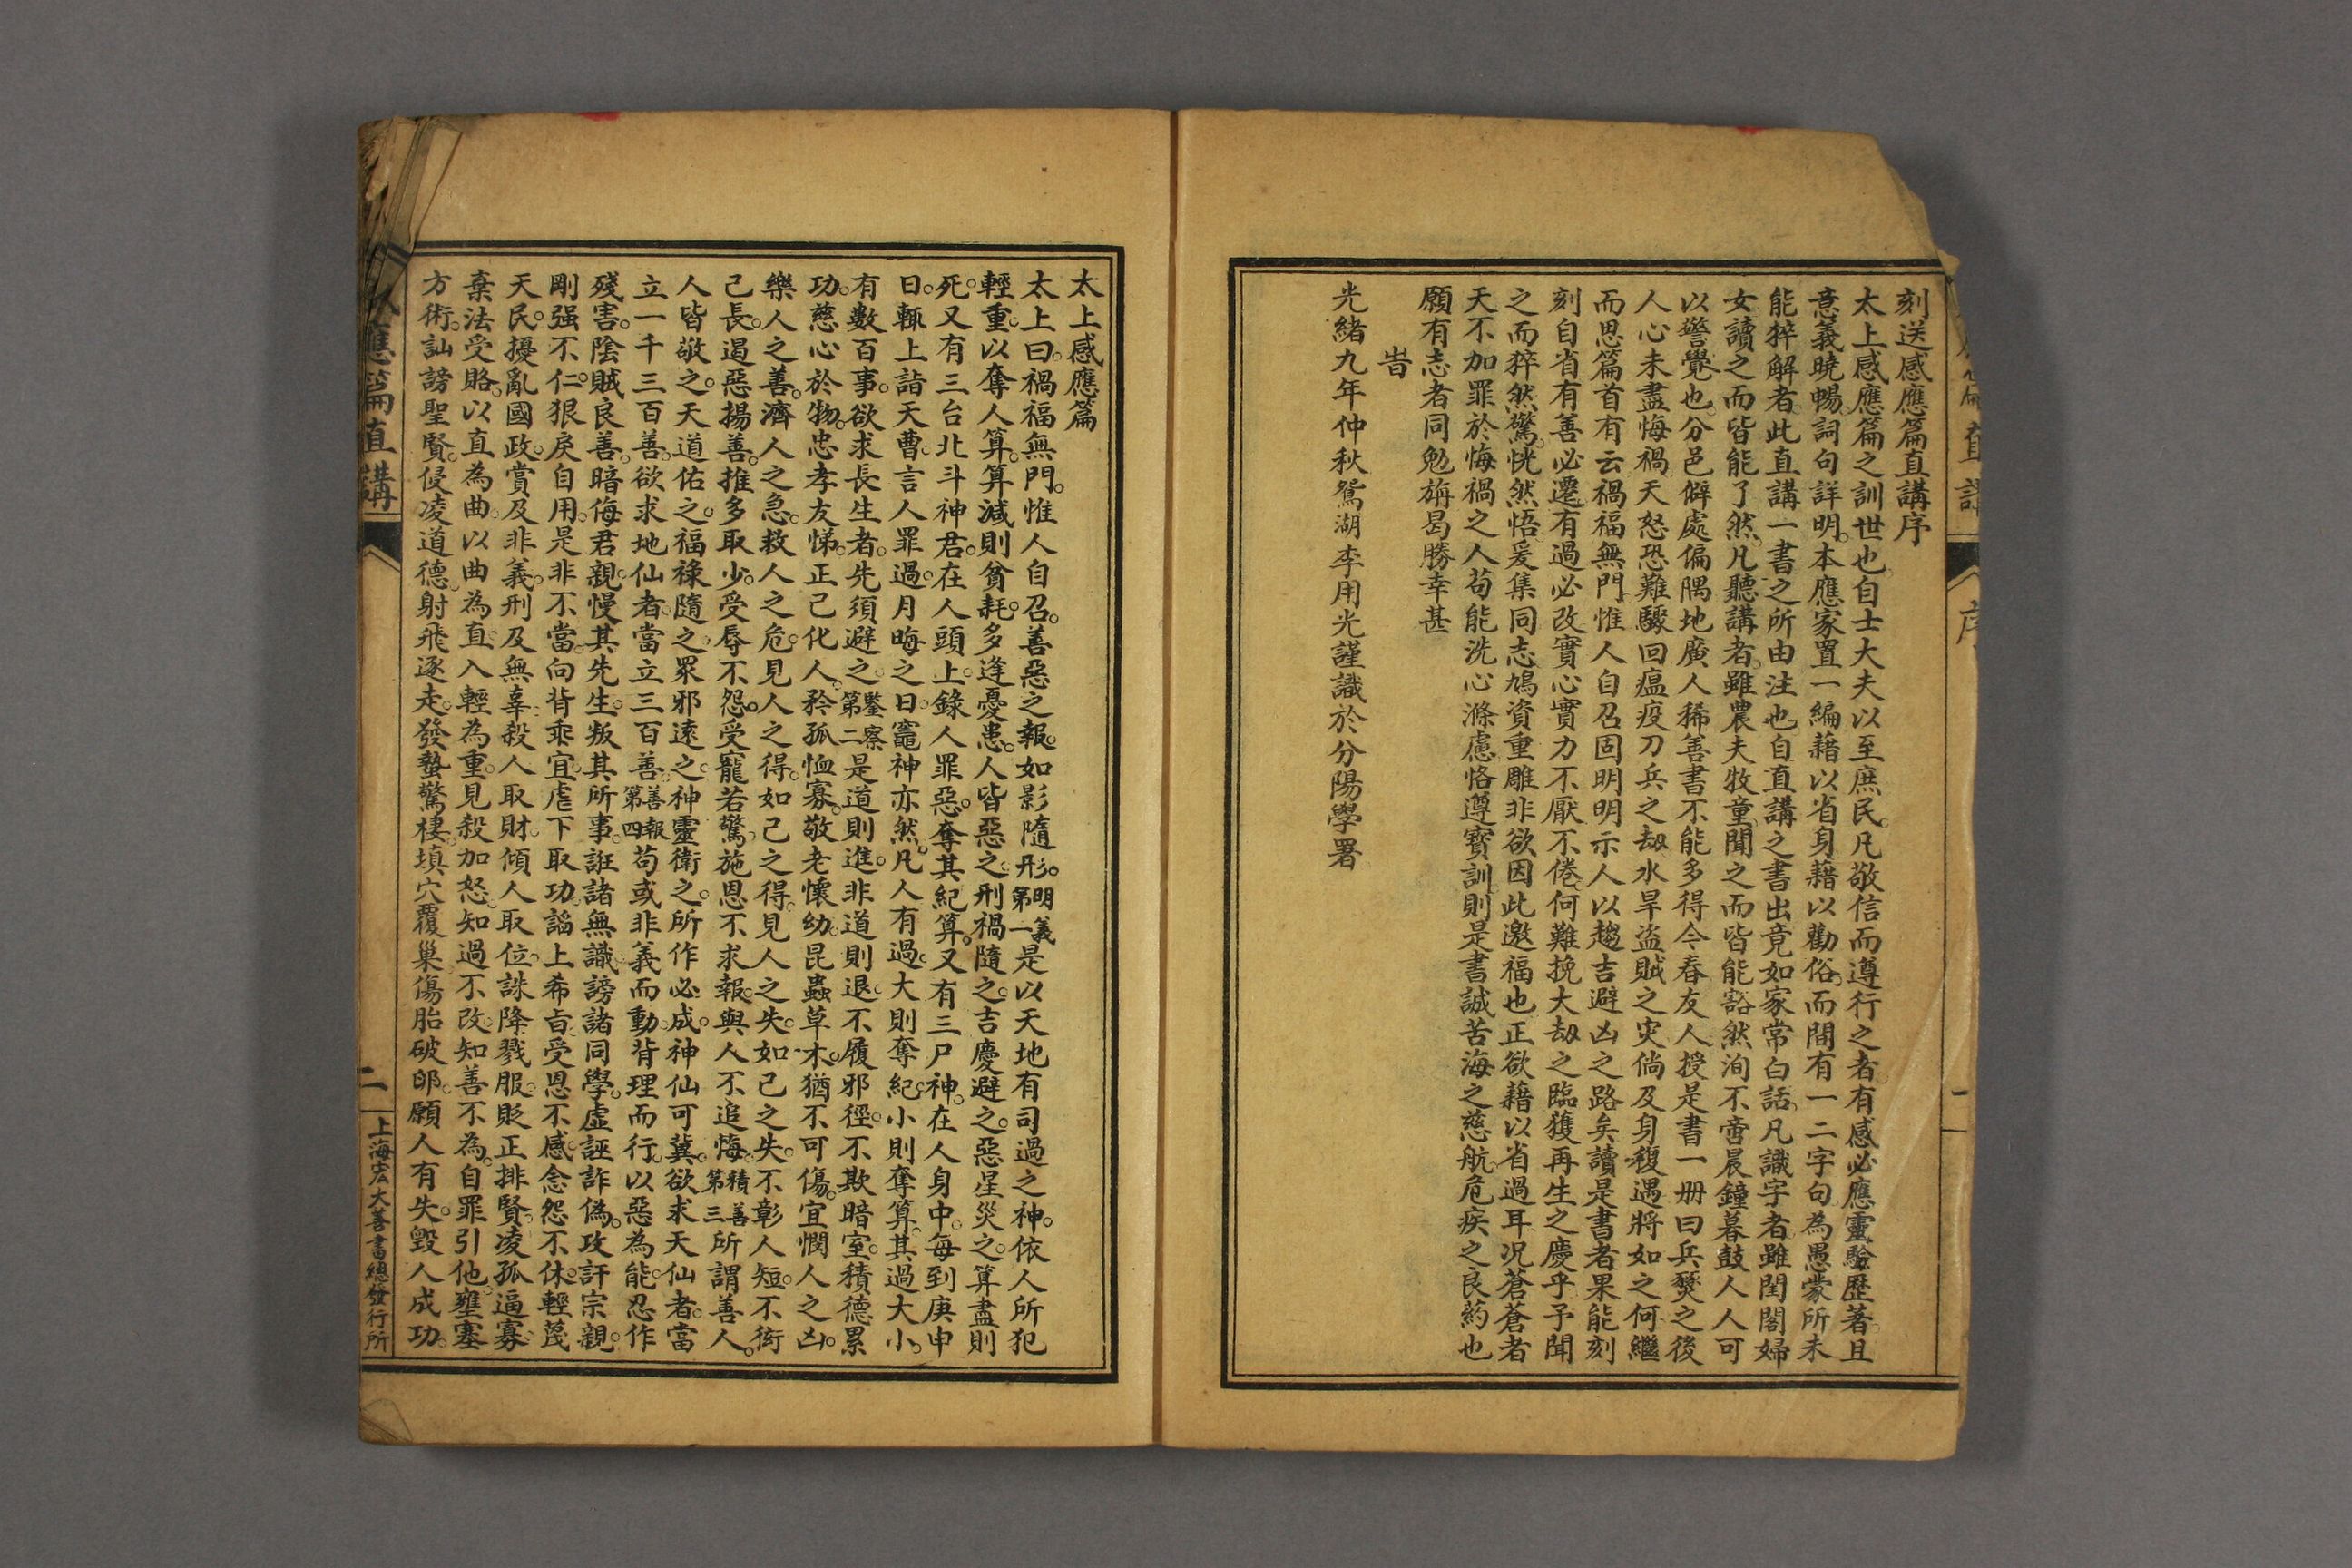 刻送感應篇直講序
太上感應篇之訓世也自士大夫以至庶民凡敬信而遵行之者有感必應靈驗歷著且
意義曉暢詞句詳明本應家置一編藉以省身藉以勸俗而間有一二字句為愚蒙所未
能猝解者此直講一書之所由注也自直講之書出竟如家常白話凡識字者雖閨閣婦
女讀之而皆能了然凡聽講者雖農夫牧童聞之而皆能豁然洵不啻晨鐘暮鼓人人可
以警覺也分邑僻處偏隅地廣人稀善書不能多得今春友人授是書一册曰兵燹之後
人心未盡悔禍天怒恐難驟回瘟疫刀兵之劫水旱盜賊之灾倘及身複遇將如之何繼
而思篇首有云禍福無門惟人自召固明明示人以趨吉避凶之路矣讀是書者果能刻
刻自省有善必遷有過必改實心實力不厭不倦何難挽大劫之臨獲再生之慶乎予聞
之而猝然驚恍然悟爰集同志鳩資重雕非欲因此邀福也正欲藉以省過耳况蒼蒼者
天不加罪於悔禍之人苟能洗心滌慮恪遵寶訓則是書誠苦海之慈航危疾之良葯也
願有志者同勉旃曷勝幸甚
旹
光緒九年仲秋鴛湖李用光謹識於分陽學署
序
太上感應篇
太上曰。禍福無門。惟人自召。善惡之報。如影隨形。明義第一是以天地有司過之神。依人所犯
輕重。以奪人算。算減則貧耗。多逢憂患。人皆惡之。刑禍隨之。吉慶避之。惡星災之。算盡則
死。又有三台北斗神君。在人頭上。錄人罪惡。奪其紀算。又有三尸神。在人身中。每到庚申
日。輒上詣天曹。言人罪過。月晦之日。竈神亦然。凡人有過。大則奪紀。小則奪算。其過大小。
有數百事。欲求長生者。先須避之。鑒察第二是道則進。非道則退。不履邪徑。不欺暗室。積德累
功。慈心於物。忠孝友悌。正己化人。矜孤恤寡。敬老懷幼。昆蟲草木。猶不可傷。宜憫人之凶。
樂人之善。濟人之急。救人之危。見人之得。如己之得。見人之失。如己之失。不彰人短。不衒
己長。遏惡揚善。推多取少。受辱不怨。受寵若驚。施恩不求報。與人不追悔。積善第三所謂善人。
人皆敬之。天道佑之。福祿隨之。眾邪遠之。神靈衛之。所作必成。神仙可冀。欲求天仙者。當
立一千三百善。欲求地仙者。當立三百善。善報第四苟或非義而動。背理而行。以惡為能。忍作
殘害。陰賊良善。暗侮君親。慢其先生。叛其所事。誑諸無識。謗諸同學。虛誣詐偽。攻訐宗親。
剛强不仁。狠戾自用。是非不當。向背乖宜。虐下取功。諂上希旨。受恩不感。念怨不休。輕蔑
天民。擾亂國政。賞及非義。刑及無辜。殺人取財。傾人取位。誅降戮服。貶正排賢。凌孤逼寡。
棄法受賂。以直為曲。以曲為直。入輕為重。見殺加怒。知過不改。知善不為。自罪引他。壅塞
方術。訕謗聖賢。侵凌道德。射飛逐走。發蟄驚棲。填穴覆巢。傷胎破卵。願人有失。毀人成功。
應篇直講
二
上海宏大善書總發行所